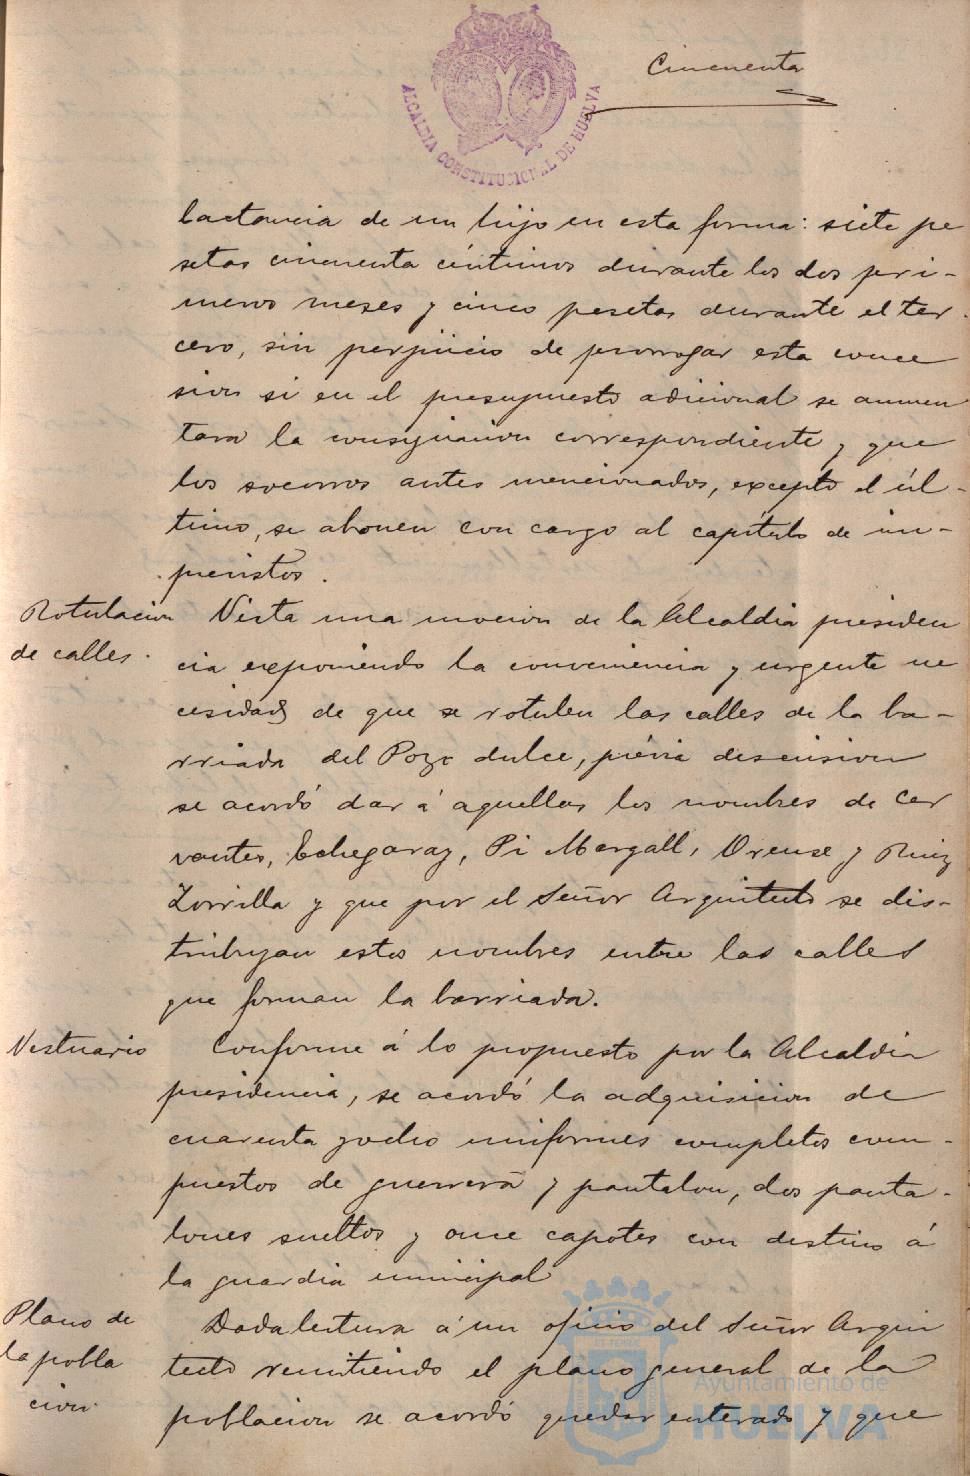 Cincuenta
ALCALDIA CONSTITUCIONAL DE HUELVA
lactancia de un hijo en esta forma: siete pe
setas cincuenta céntimos durante los dos pri-
meros meses y cinco pesetas durante el ter-
cero, sin perjuicio de prorrogar esta conce
sion si en el presupuesto adicional se aumen
tara la consignacion correspondiente y que
los socorros antes mencionados, excepto el úl-
timo, se abonen con cargo al capítulo de im-
previstos.
Rotulacion
de calles.
Vista una mocion de la Alcaldia presiden
cia exponiendo la conveniencia y urgente ne
cesidad de que se rotulen las calles de la ba-
rriada del Pozo dulce, prévia discusion
se acordó dar á aquellas los nombres de Cer
vantes, Echegaray, Pi Margall, Orense y Ruiz
Zorrilla y que por el Señor Arquitecto se dis-
tribuyan estos nombres entre las calles
que forman la barriada.
Vestuario
Conforme á lo propuesto por la Alcaldia
presidencia, se acordó la adquisicion de
cuarenta y ocho uniformes completos com-
puestos de guerrera y pantalon, dos panta-
lones sueltos y once capotes con destino á
la guardia municipal
Plano de
la pobla
cion.
Dada lectura á un oficio del Señor Arqui
tecto remitiendo el plano general de la
poblacion se acordó quedar enterado y que
Ayuntamiento de
HUELVA